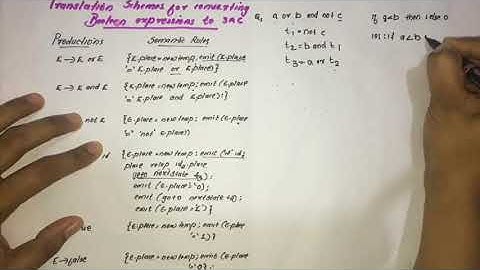 Translation Schemes for converting
Boolean expressions to 3AC
Productions Semantic Rules
E → E or E {E.place = newtemp; emit (E.place
'=' E.place or E.place)}
E → E and E {E.place = newtemp; emit (E.place
'=' E.place and E.place)}
not E {E.place = newtemp; emit (E.place
'=' 'not' E.place)
id {E.place = newtemp; emit ('if' id,
place relop id₂.place
goto nextstate +3);
emit (E.place '=' 0);
emit (goto nextstate +2);
emit (E.place '=' 1)}
{E.place = newtemp; emit (E.place
'=' 1)}
E → false {E.place = newtemp; emit (E.place
'=' 0)}
a or b and not c
t₁ = not c
t₂ = b and t₁
t₃ = a or t₂
if a<b then 1 else 0
101: if a<b